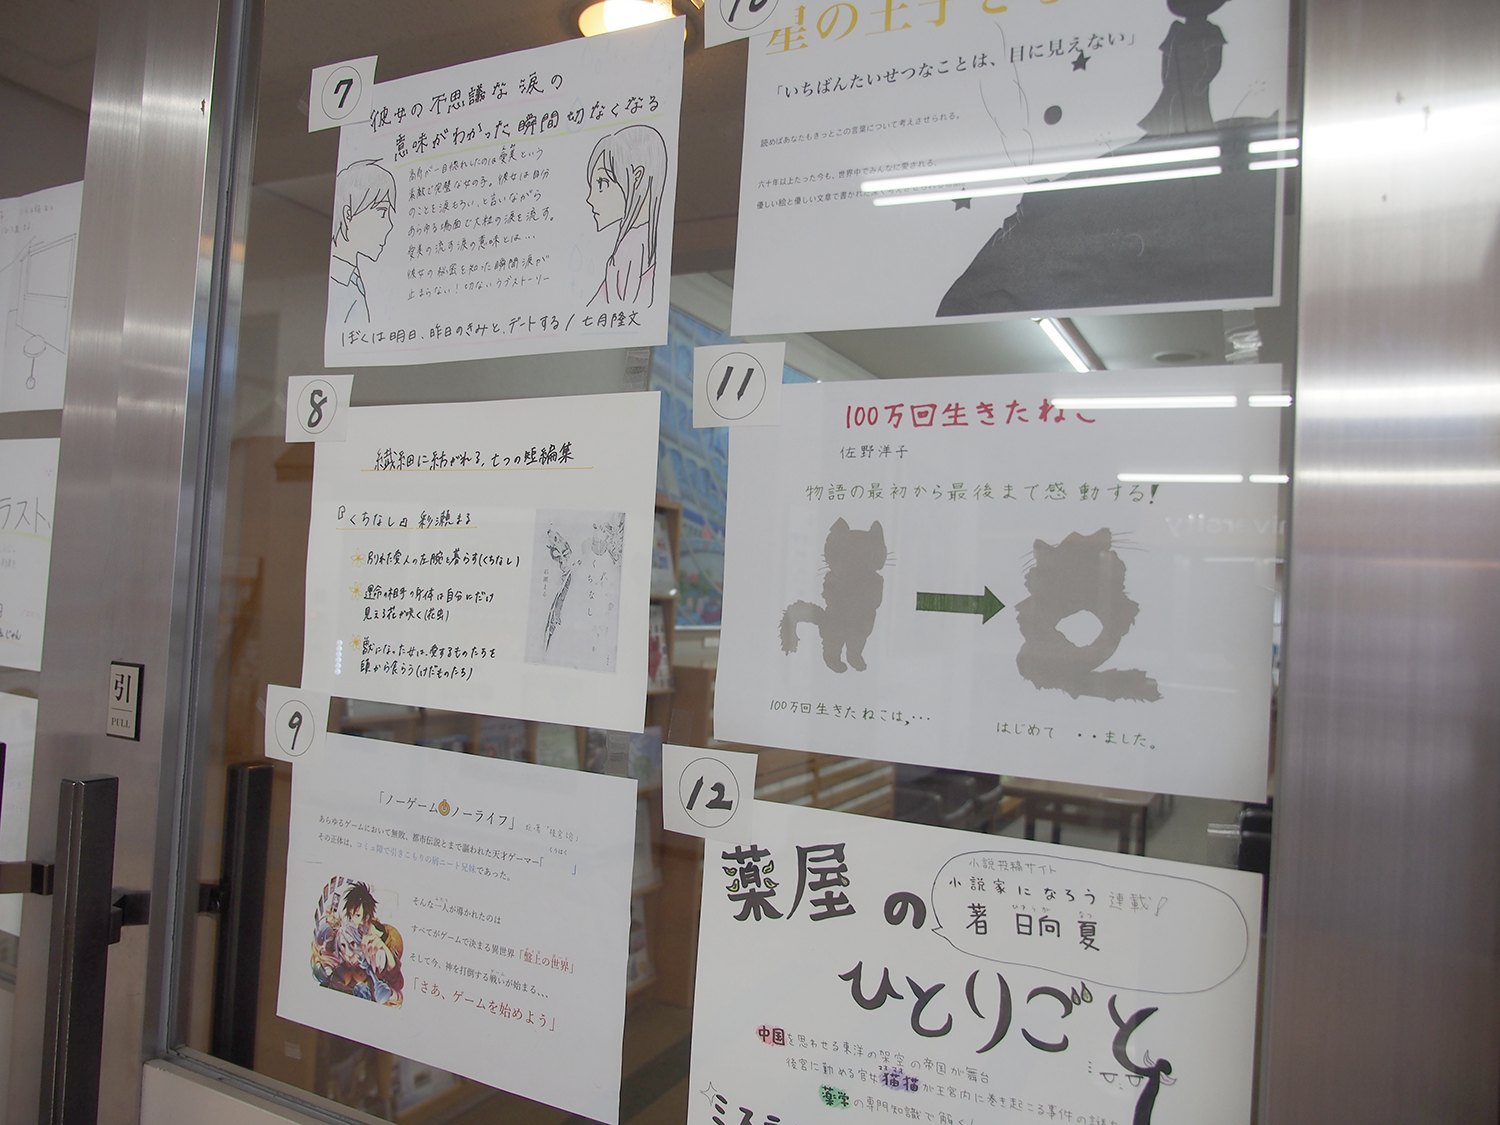 7
彼女の不思議な涙の
意味がわかった瞬間切なくなる
高寿が一目惚れしたのは愛美という
素敵で完璧な女の子。彼女は自分
のことを涙もろい、と言いながら
あらゆる場面で大粒の涙を流す。
愛美の流す涙の意味とは…
彼女の秘密を知った瞬間涙が
止まらない!切ないラブストーリー
ぼくは明日、昨日のきみと、デートする/七月隆文
8
繊細に紡がれる、七つの短編集
『くちなし』 彩瀬まる
別れた愛人の左腕と暮らす(くちなし)
運命の相手の身体は自分にだけ
見える花が咲く(花虫)
獣になった女は、愛するものたちを
頭から食らう(けだものたち)
くちなし
9
「ノーゲーム ノーライフ」
あらゆるゲームにおいて無敗、都市伝説とまで謳われた天才ゲーマー「 」
くうはく
その正体は、コミュ障で引きこもりの廃ニート兄妹であった。
そんな二人が導かれたのは
すべてがゲームで決まる異世界「盤上の世界」
そして今、神を打倒する戦いが始まる、、、
「さあ、ゲームを始めよう」
10
星の王子さま
「いちばんたいせつなことは、目に見えない」
読めばあなたもきっとこの言葉について考えさせられる。
六十年以上たった今も、世界中でみんなに愛される、
優しい絵と優しい文章で書かれた
11
100万回生きたねこ
佐野洋子
物語の最初から最後まで感動する!
100万回生きたねこは,・・・
はじめて ・・ました。
12
薬屋の
ひとりごと
小説投稿サイト
小説家になろう 連載!
著 日向 夏
中国を思わせる東洋の架空の帝国が舞台
後宮に勤める官女猫猫が王宮内に巻き起こる事件の謎を
薬学の専門知識で解く
引
PULL
ラスト、